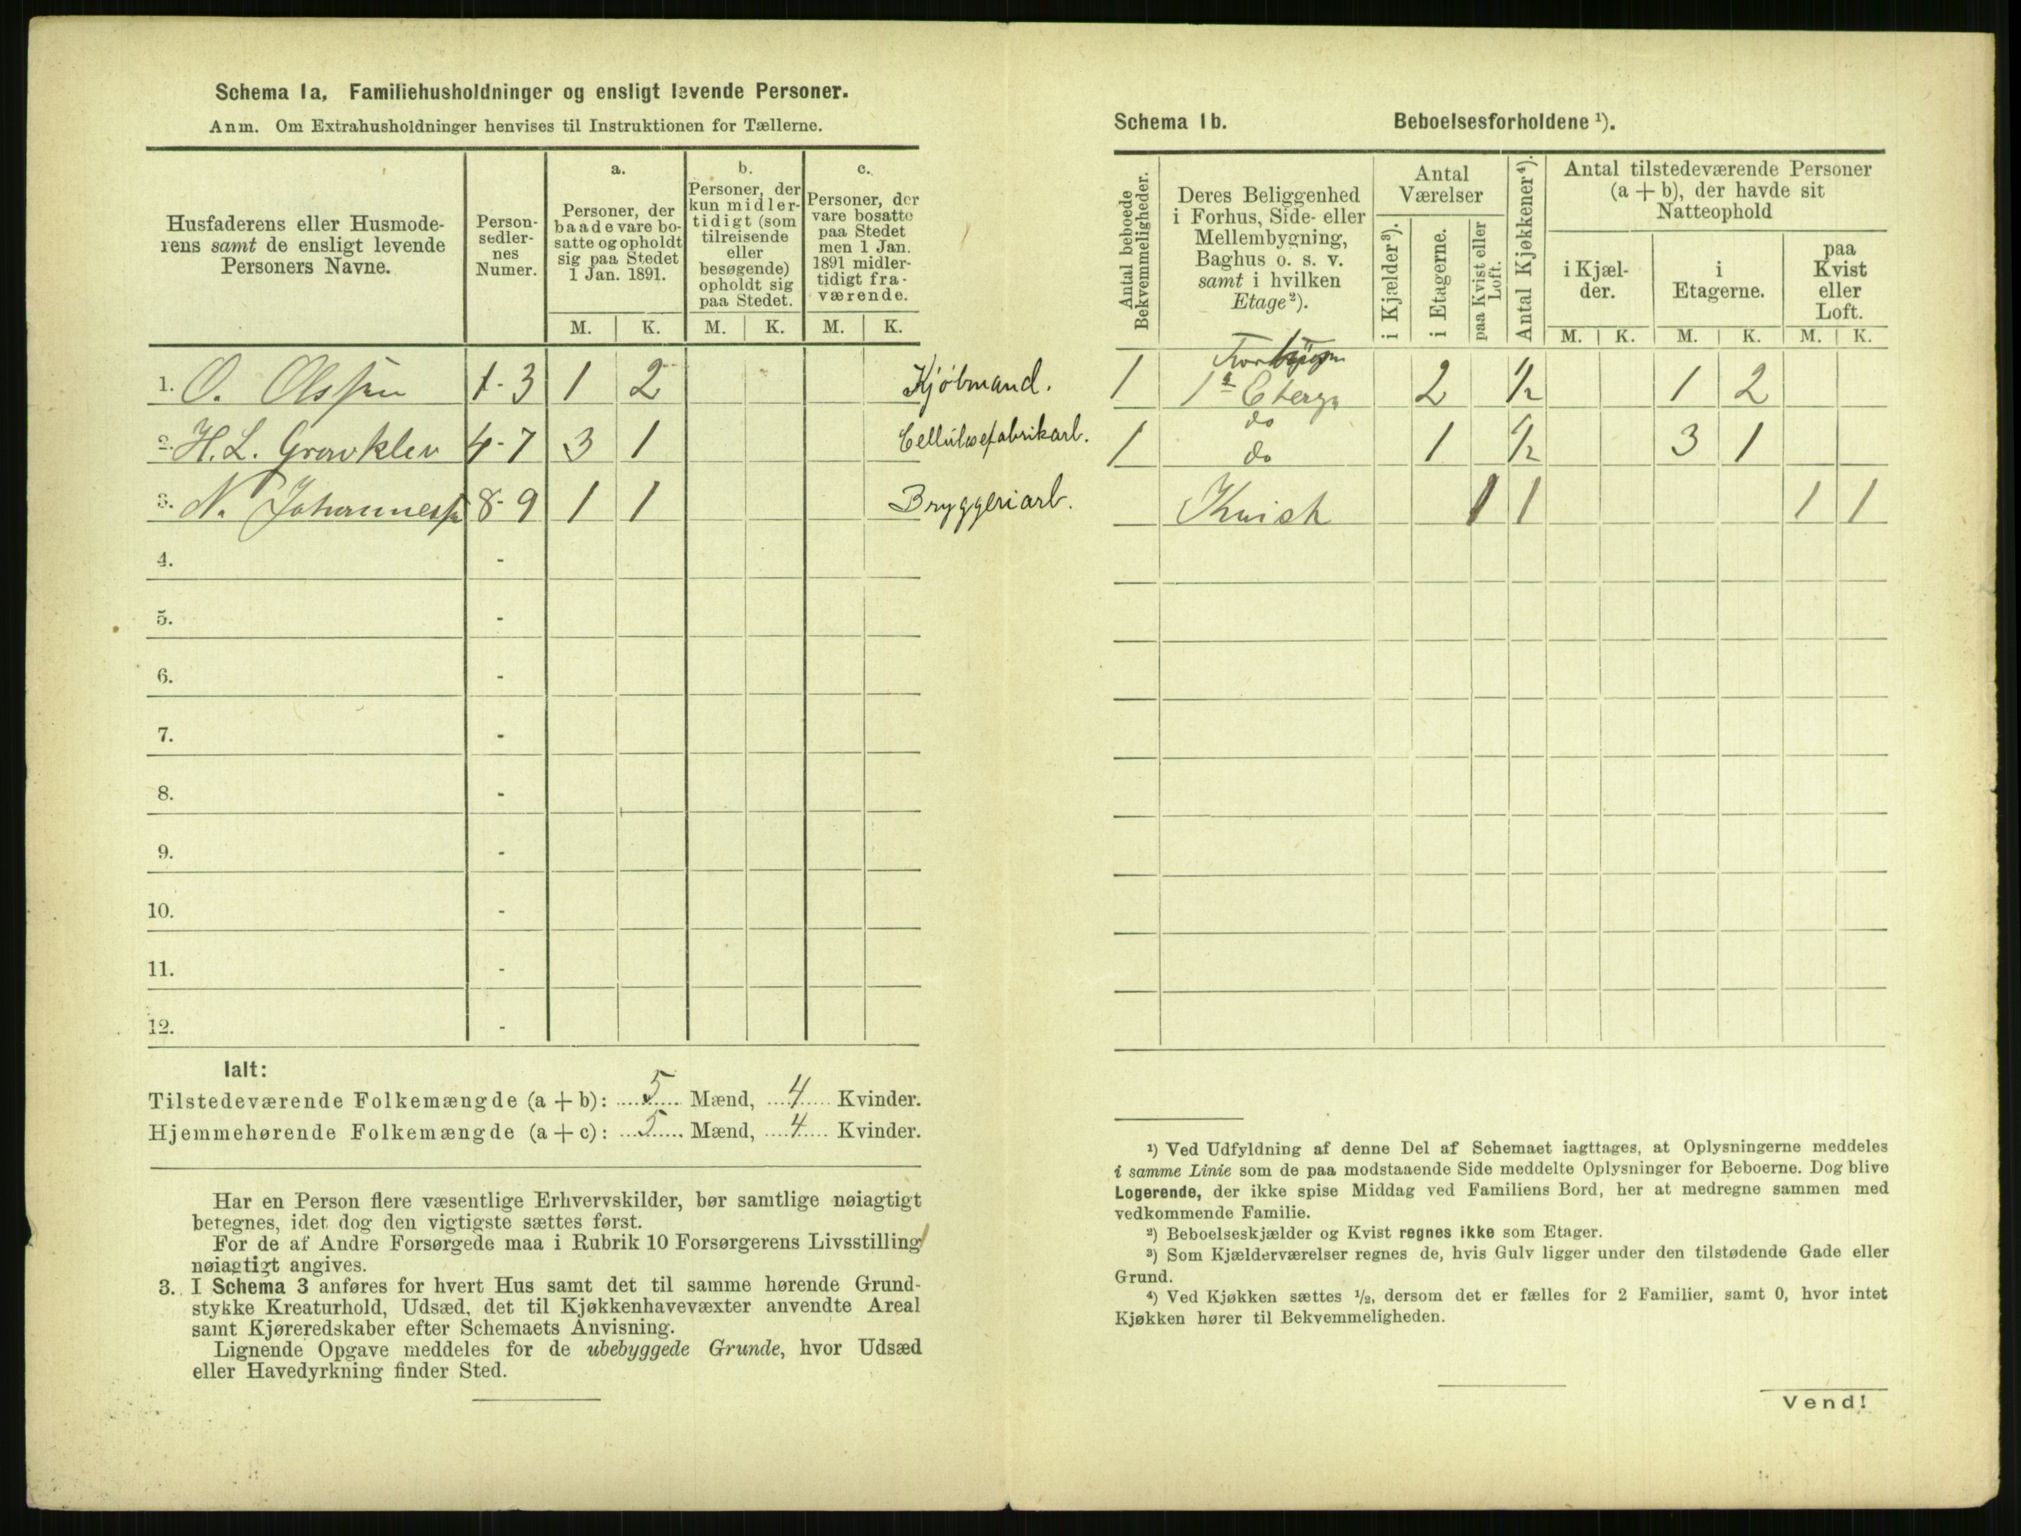 Schema 1a, Familiehusholdninger og ensligt levende Personer.
Anm. Om Extrahusholdninger henvises til Instruktionen for Tællerne.
Husfaderens eller Husmode-
rens samt de ensligt levende
Personers Navne.
Person-
sedler-
nes
Numer.
a.
Personer, der
baade vare bo-
satte og opholdt
sig paa Stedet
1 Jan. 1891.
b.
Personer, der
kun midler-
tidigt (som
tilreisende
eller
besøgende)
opholdt sig
paa Stedet.
c.
Personer, der
vare bosatte
paa Stedet
men 1 Jan.
1891 midler-
tidigt fra-
værende.
M. K. M. K. M. K.
1. O. Olssen 1-3 1 2 Kjøbmand.
2. H. L. Gravklev 4-7 3 1 Cellulosefabrikarb.
3. N. Johannessen 8-9 1 1 Bryggeriarb.
4. -
5. -
6. -
7. -
8. -
9. -
10. -
11. -
12. -
Ialt:
Tilstedeværende Folkemængde (a + b): 5 Mænd, 4 Kvinder.
Hjemmehørende Folkemængde (a + c): 5 Mænd, 4 Kvinder.
Har en Person flere væsentlige Erhvervskilder, bør samtlige nøiagtigt
betegnes, idet dog den vigtigste sættes først.
For de af Andre Forsørgede maa i Rubrik 10 Forsørgerens Livsstilling
nøiagtigt angives.
3. I Schema 3 anføres for hvert Hus samt det til samme hørende Grund-
stykke Kreaturhold, Udsæd, det til Kjøkkenhavevæxter anvendte Areal
samt Kjøreredskaber efter Schemaets Anvisning.
Lignende Opgave meddeles for de ubebyggede Grunde, hvor Udsæd
eller Havedyrkning finder Sted.
Schema 1b. Beboelsesforholdene ¹).
Antal beboede
Bekvemmeligheder.
Deres Beliggenhed
i Forhus, Side- eller
Mellembygning,
Baghus o. s. v.
samt i hvilken
Etage ²).
Antal
Værelser
i Kjælder ³).
i Etagerne.
paa Kvist eller
Loft.
Antal Kjøkkener ⁴).
Antal tilstedeværende Personer
(a + b), der havde sit
Natteophold
i Kjæl-
der.
i
Etagerne.
paa
Kvist
eller
Loft.
M. K. M. K. M. K.
1 1 2 ½ 1 2
do
1 do 1 ½ 3 1
Kvist 1 1 1 1
¹) Ved Udfyldning af denne Del af Schemaet iagttages, at Oplysningerne meddeles
i samme Linie som de paa modstaaende Side meddelte Oplysninger for Beboerne. Dog blive
Logerende, der ikke spise Middag ved Familiens Bord, her at medregne sammen med
vedkommende Familie.
²) Beboelseskjælder og Kvist regnes ikke som Etager.
³) Som Kjælderværelser regnes de, hvis Gulv ligger under den tilstødende Gade eller
Grund.
⁴) Ved Kjøkken sættes ½, dersom det er fælles for 2 Familier, samt 0, hvor intet
Kjøkken hører til Bekvemmeligheden.
Vend!